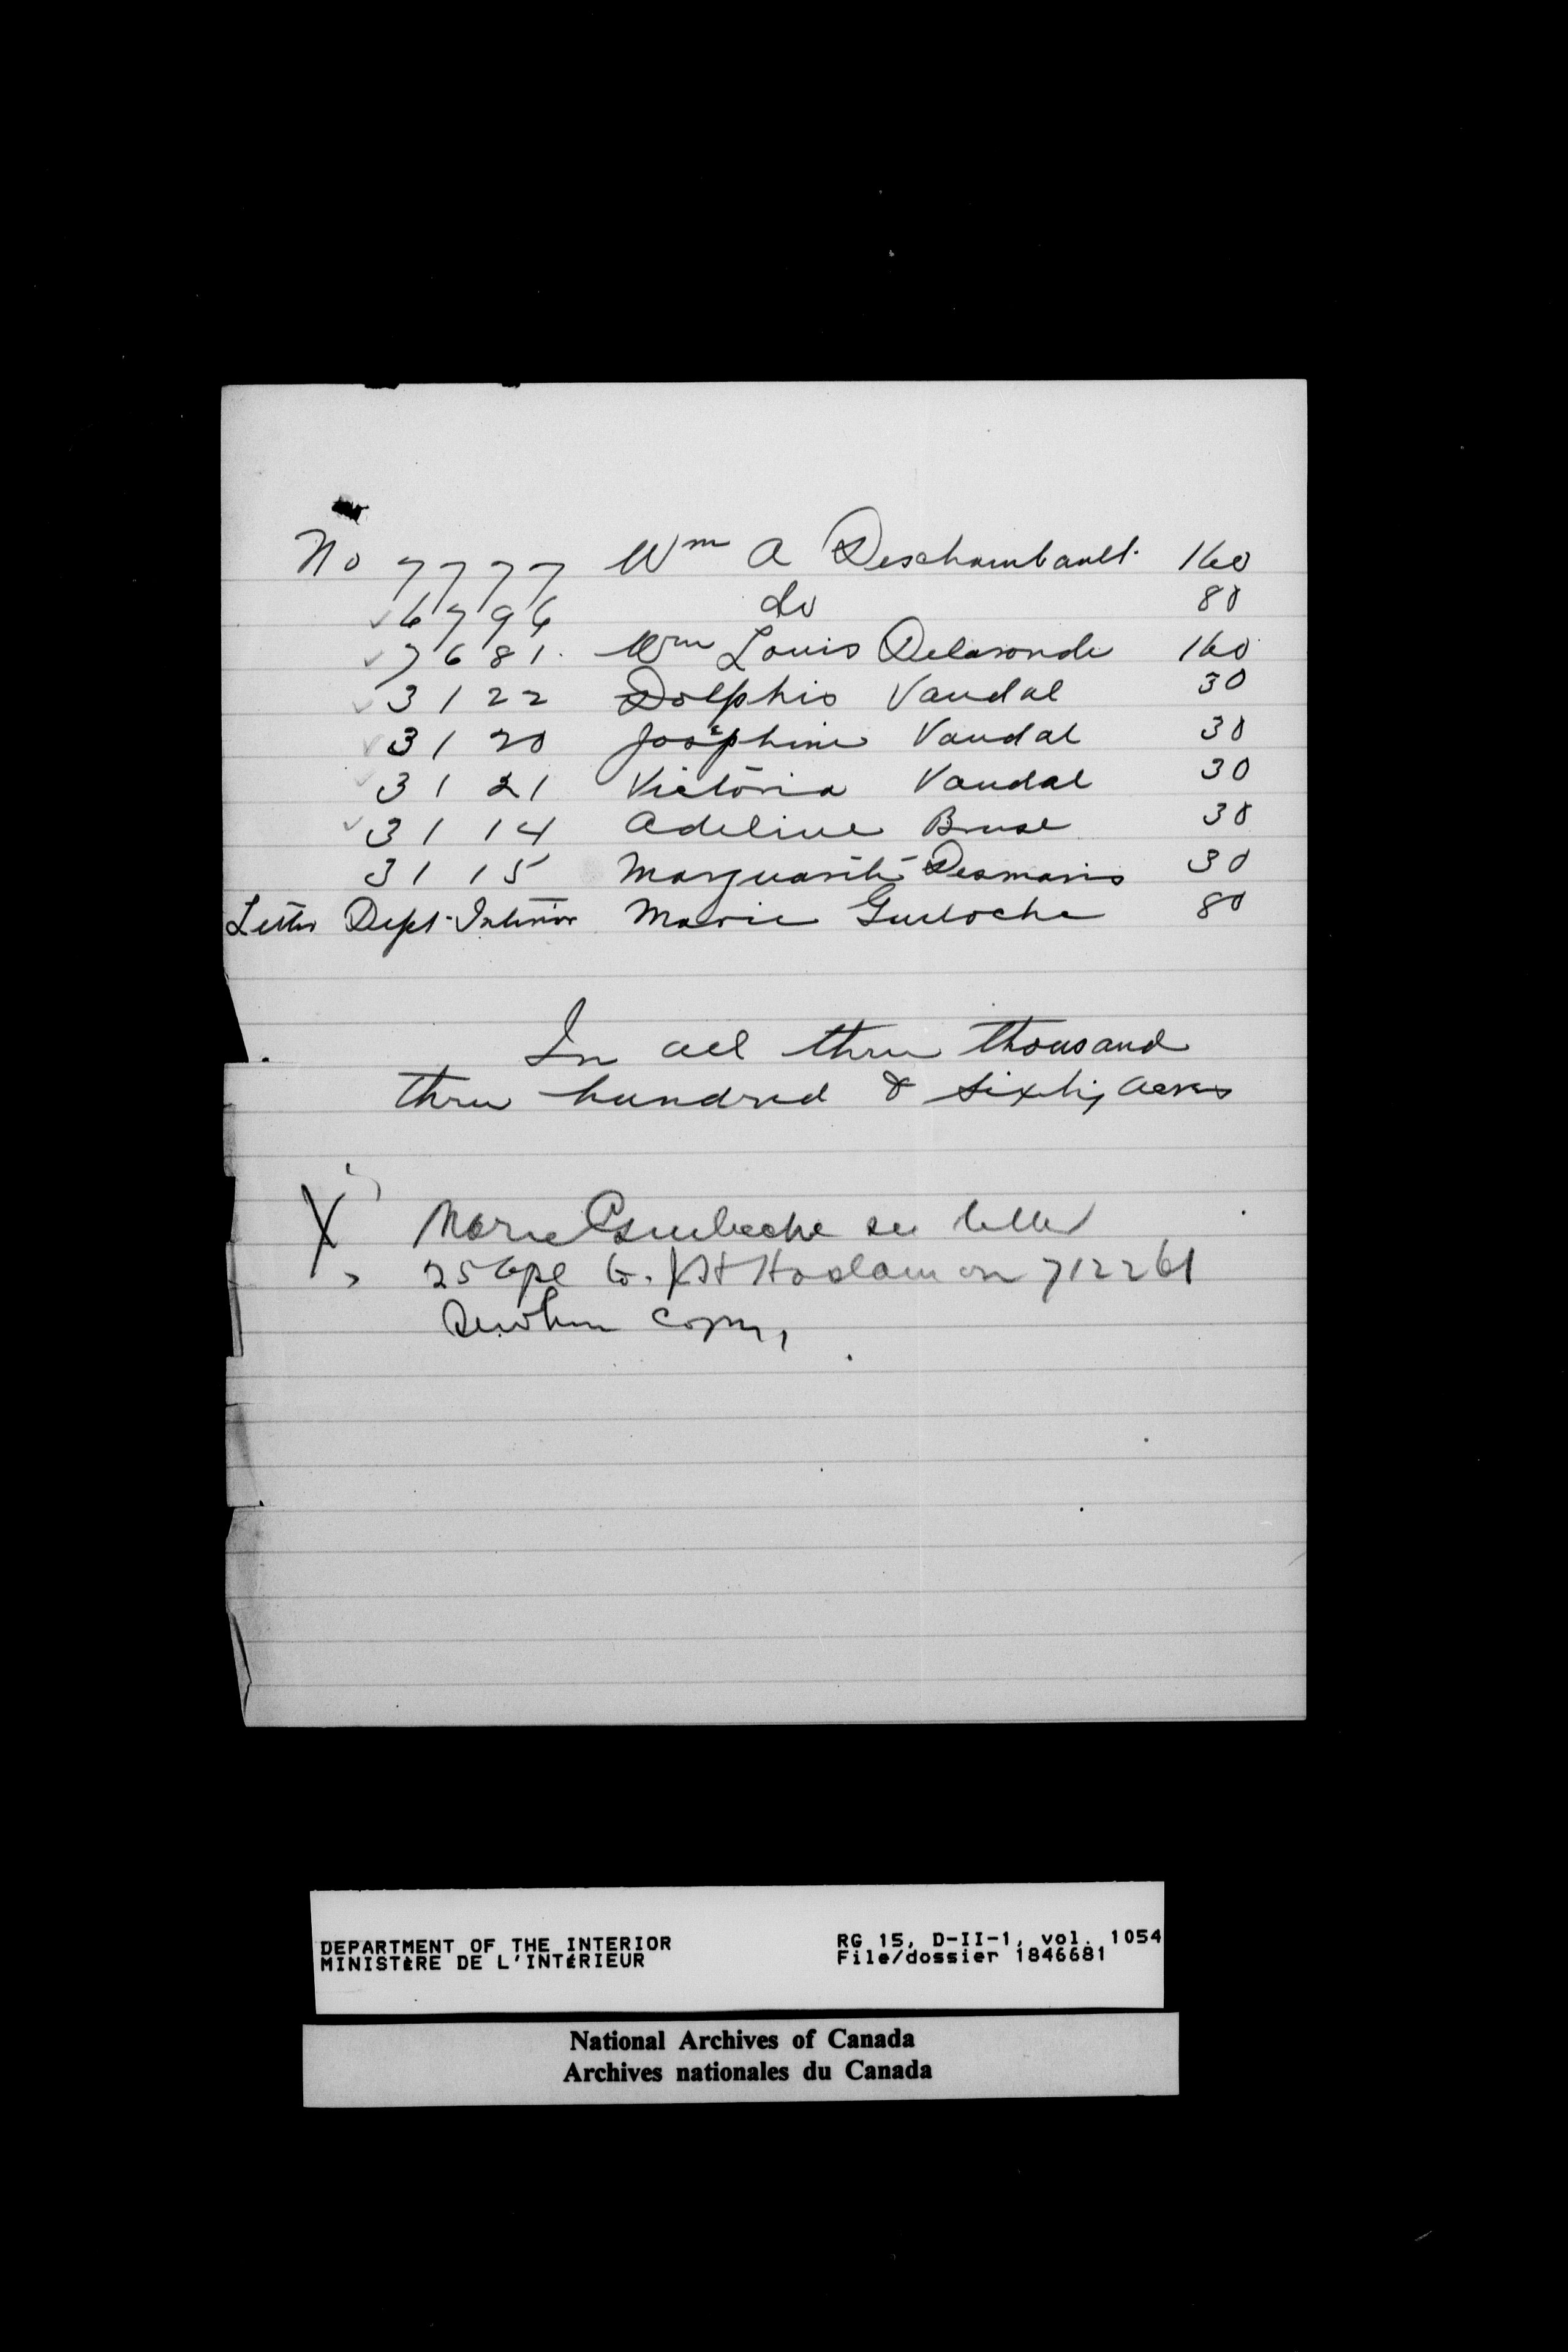 No 7777 Wm A Deschambault 160
6796 do 80
7681. Wm Louis Delaronde 160
3122 Dolphis Vandal 30
3120 Josephine Vandal 30
3121 Victoria Vandal 30
3114 Adeline Bruse 30
3115 Marguarite Desmaris 30
Letter Dept Interior Marie Guiloche 80
In all three thousand
three hundred & sixty acres
X Marie see letter
25 Apl to. Haslam on 712261
copy,
DEPARTMENT OF THE INTERIOR RG 15, D-II-1, vol. 1054
MINISTÈRE DE L'INTÉRIEUR File/dossier 1846681
National Archives of Canada
Archives nationales du Canada